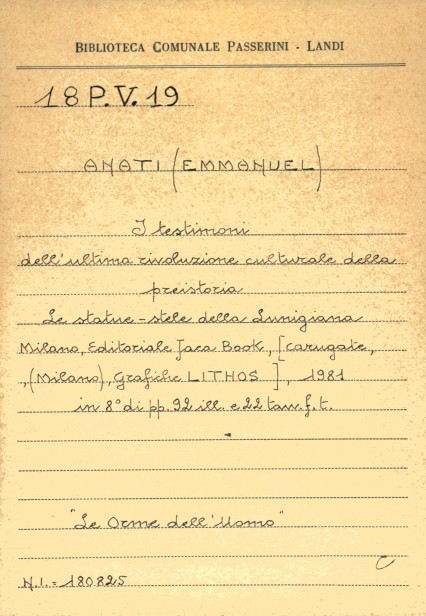 BIBLIOTECA COMUNALE PASSERINI - LANDI
18 P.V. 19
ANATI (EMMANUEL)
I testimoni
dell'ultima rivoluzione culturale della
preistoria
Le statue-stele della Lunigiana
Milano, Editoriale Jaca Book, [Carugate,
,(Milano), Grafiche LITHOS ], 1981
in 8° di pp. 92 ill. e 22 tav. f. t.
"Le Orme dell'Uomo"
C
N.I. = 180825